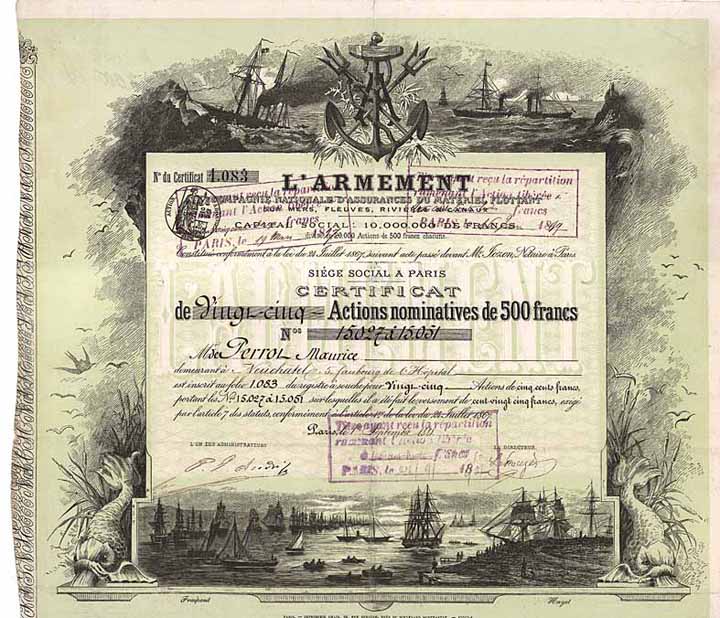 N° du Certificat 1.083
L'ARMEMENT
COMPAGNIE NATIONALE D'ASSURANCES DU MATÉRIEL FLOTTANT
SUR MERS, FLEUVES, RIVIÈRES & CANAUX
CAPITAL SOCIAL: 10.000.000 DE FRANCS
20,000 Actions de 500 francs chacune.
reçu la répartition
l'Action libérée
francs
PARIS, le
Titre ayant reçu la répartition
ramenant l'Action libérée
francs
PARIS
Constituée conformément à la loi du 24 Juillet 1867, suivant acte passé devant Me Notaire à Paris
SIÈGE SOCIAL A PARIS
CERTIFICAT
de Vingt-cinq Actions nominatives de 500 francs
Nos 15.027 à 15.051
M de Perrot Maurice
demeurant à Neuchatel 5, faubourg de l'Hôpital
est inscrit au folio 1.083 du registre à souche pour Vingt-cinq Actions de cinq cents francs,
portant les Nos 15.027 à 15.051 sur lesquelles il a été fait le versement de cent vingt cinq francs, exigé
par l'article 7 des statuts, conformément à l'article 1er de la loi du 24 Juillet 1867
Paris, le 1er Septembre
Titre ayant reçu la répartition
ramenant l'Action libérée
à francs
PARIS, le
L'UN DES ADMINISTRATEURS
LE DIRECTEUR,
L'ARMEMENT